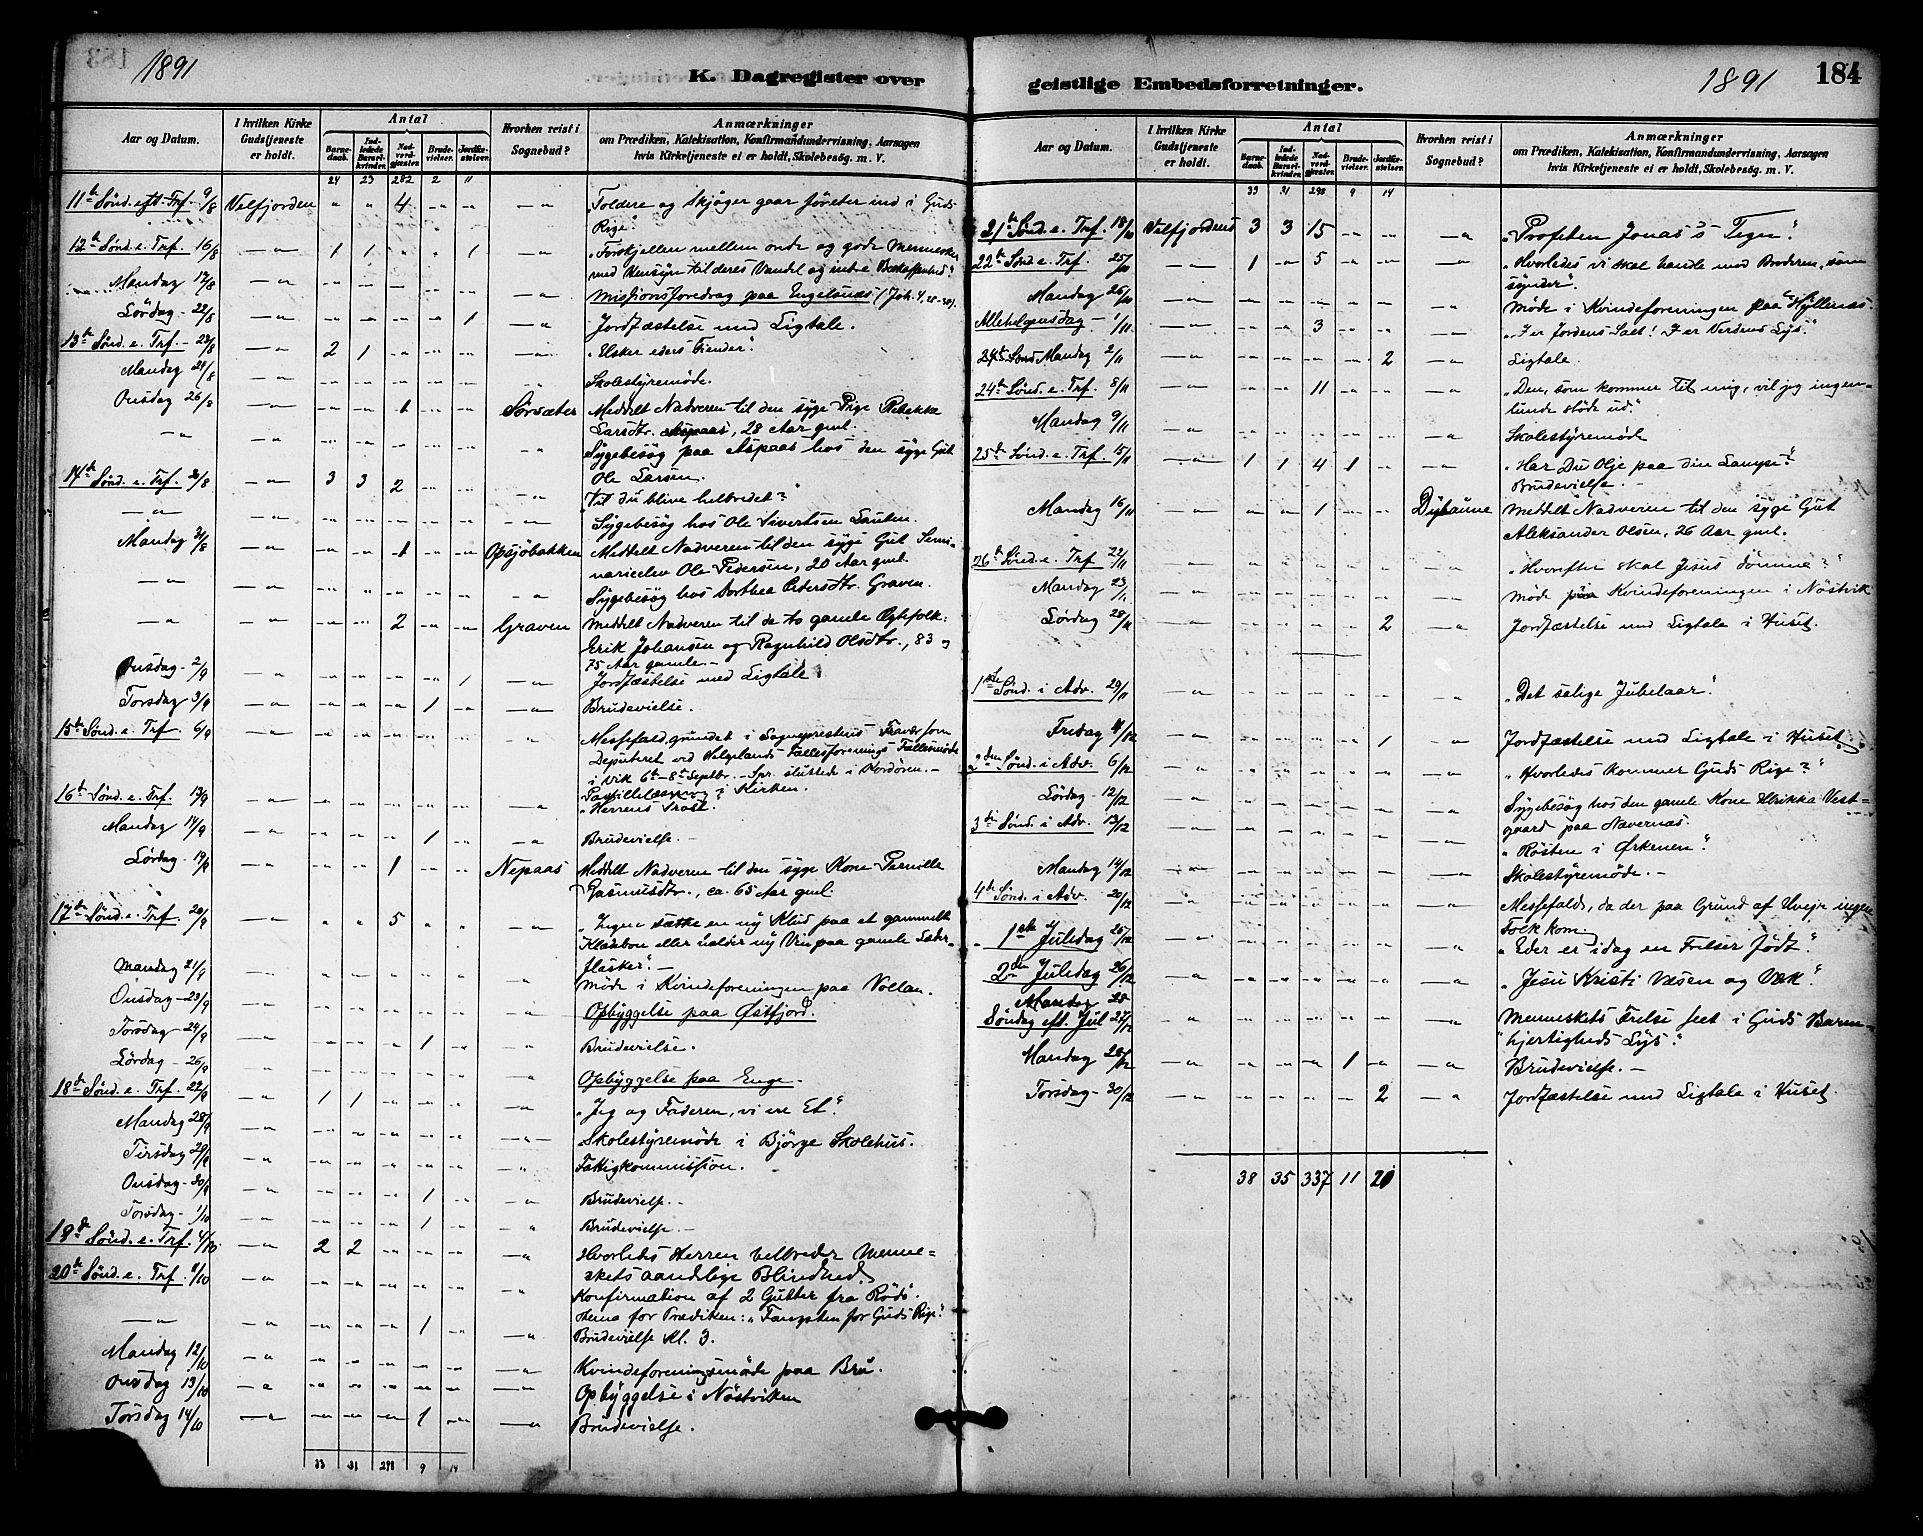 1891
K. Dagregister over
Aar og Datum. I hvilken Kirke Gudstjeneste er holdt. Antal Barnedaab. Indledede Barselkvinder. Nadverdgjæster. Brudevielser. Jordfæstelser. Hvorhen reist i Sognebud? Anmærkninger om Prædiken, Katekisation, Konfirmandundervisning, Aarsagen hvis Kirketjeneste ei er holdt, Skolebesög. m. V.
24 23 282 2 11
11te Sönd. eft. Trf. 9/8 Velfjorden " " 4 " " " Toldere og Skjöger gaar företer ind i Guds
Rige"
12te Sönd. e. Trf. 16/8 " 1 1 " " 1 " "Forskjellen mellem onde og gode Mennesker
med Hensyn til deres Vandel og indre Beskaffenhed."
Mandag 17/8 " " " " " " " Missionsforedrag paa Engelsnæs (Joh. 4.28-30).
Lördag 22/8 " " " " " 1 " Jordfæstelse med Ligtale.
13de Sönd. e. Trf. 23/8 " 2 1 " " " " "Elsker eders Fiender".
Mandag 24/8 " " " " " " " Skolestyremöde.
Onsdag 26/8 " " " 1 " " Sörsæter Meddelt Nadveren til den syge Pige Rebekka
Larsdtr. Aspaas, 28 Aar gml.
" " " " " " " " Sygebesög paa Aspaas hos den syge Gut
Ole Larsen.
14de Sönd. e. Trf. 30/8 " 3 3 2 " " " "Vil du blive helbredet?"
" " " " " " " " Sygebesög hos Ole Sivertsen
Mandag 31/8 " " " 1 " " Opsjöbakken Meddelt Nadveren til den syge Gut Semi-
narieelev Ole Pedersen, 20 Aar gml.
" " " " " " " " Sygebesög hos Dorthea Pedersdtr. Graven.
" " " " 2 " " Graven Meddelt Nadveren til de to gamle Ægtefolk:
Erik Johansen og Ragnhild Olsdtr., 83 og
75 Aar gamle.-
Onsdag 2/9 " " " " " 1 " Jordfæstelse med Ligtale
Torsdag 3/9 " " " " 1 " " Brudevielse.
15de Sönd. e. Trf. 6/9 " " " " " " " Messefald, grundet i Sogneprestens Fravær som
Deputeret ved Helgelands Fællesforenings Fællesmöde
i Vik 6te-8de Septbr. - Spr. sluttede i Nordöien.-
læsning i Kirken.
16de Sönd. e. Trf. 13/9 " " " " " " " "Herrens Trøst."
Mandag 14/9 " " " " 1 " " Brudevielse.-
Lördag 19/9 " " " 1 " " Nepaas Meddelt Nadveren til den syge Kone Pernille
Rasmusdtr., ca. 65 Aar gml.
17de Sönd. e. Trf. 20/9 " " " 5 " " " "Ingen sætte en ny Klud paa et gammelt
Klædebon eller helder ny Vin paa gamle Læder-
flasker."-
Mandag 21/9 " " " " " " " Möde i Kvindeforeningen paa Vollan.
Onsdag 23/9 " " " " " " " Opbyggelse paa Østfjord.
Torsdag 24/9 " " " " 1 " " Brudevielse.
Lördag 26/9 " " " " " " " Opbyggelse paa Enge.-
18de Sönd. e. Trf. 27/9 " 1 1 " " " " "Jeg og Faderen, vi ere Et."
Mandag 28/9 " " " " " " " Skolestyremöde i Björge Skolehus.
Tirsdag 29/9 " " " " " " " Fattigkommission.
Onsdag 30/9 " " " " 1 " " Brudevielse.-
Torsdag 1/10 " " " " 1 " " Brudevielse.-
19de Sönd. e. Trf. 4/10 " 2 2 " " " " Hvorledes Herren helbreder Menne-
skets aandelige Blindhed.
20de Sönd. e. Trf. 11/10 " " " " " " " Konfirmation af 2 Gutter fra Röds.
Thema for Prædiken: "Fangsten for Guds Rige."
" " " " " 1 " " Brudevielse Kl. 3.
Mandag 12/10 " " " " " " " Kvindeforeningsmöde paa Brü.
Onsdag 13/10 " " " " " " " Opbyggelse i Nöstviken
Torsdag 14/10 " " " " 1 " " Brudevielse.
33 31 298 9 14
geistlige Embedsforretninger.
1891 184
Aar og Datum. I hvilken Kirke Gudstjeneste er holdt. Antal Barnedaab. Indledede Barselkvinder. Nadverdgjæster. Brudevielser. Jordfæstelser. Hvorhen reist i Sognebud? Anmærkninger om Prædiken, Katekisation, Konfirmandundervisning, Aarsagen hvis Kirketjeneste ei er holdt, Skolebesög. m. V.
33 31 298 9 14
21de Sönd. e. Trf. 18/10 Velfjordens 3 3 15 " " " "Profeten Jonas's Tegn".
22de Sönd. e. Trf. 25/10 " 1 " 5 " " " "Hvorledes vi skal handle med Broderen, som
synder".
Mandag 26/10 " " " " " " " Möde i Kvindeforeningen paa Hyllernæs.
Allehelgensdag 1/11 " " " 3 " " " "I er Jordens Salt! I er Verdens Lys".
24de Sönd Mandag 2/11 " " " " " 2 " Ligtale.
24de Sönd. e. Trf. 8/11 " " " 11 " " " "Den, som kommer til mig, vil jeg ingen-
lunde støde ud."
Mandag 9/11 " " " " " " " Skolestyremöde
25de Sönd. e. Trf. 15/11 " 1 1 4 1 " " "Har Du Olje paa din Lampe?"
Brudevielse.-
Mandag 16/11 " " " 1 " " Meddelt Nadveren til den syge Gut
Aleksander Olsen, 26 Aar gml.
26de Sönd. e. Trf 22/11 " " " " " " " "Hvorefter skal Jesus dömme?"
Mandag 23/11 " " " " " " " Möde paa Kvindeforeningen i Nöstvik
Lördag 28/11 " " " " " 2 " Jordfæstelse med Ligtale i Huset.
1ste Sönd. i Adv. 29/11 " " " " " " " "Det salige Jubelaar".
Fredag 4/12 " " " " " 1 " Jordfæstelse med Ligtale i Huset.
2den Sönd. i Adv. 6/12 " " " " " " " "Hvorledes kommer Guds Rige?"
Lördag 12/12 " " " " " " " Sygebesög hos den gamle Kone Ulrikka Vest-
gaard paa Nævernæs.
3die Sönd. i Adv. 13/12 " " " " " " " "Røsten i Ørkenen".
Mandag 14/12 " " " " " " " Skolestyremöde.-
4de Sönd. i Adv. 20/12 " " " " " " " Messefald, da der paa Grund af Uveir ingen
Folk kom.
1ste Juledag 25/12 " " " " " " " "Eder er idag en Frelser födt".
2den Juledag 26/12 " " " " " " " "Jesu Kristi Væsen og Værk".
Mandag 28
Söndag eft. Jul 27/12 " " " " " " " Menneskets Frelse seet i Guds Barm-
hjertigheds Lys".
Mandag 28/12 " " " " 1 " " Brudevielse.-
Torsdag 30/12 " " " " " 2 " Jordfæstelse med Ligtale i Huset.
38 35 337 11 20